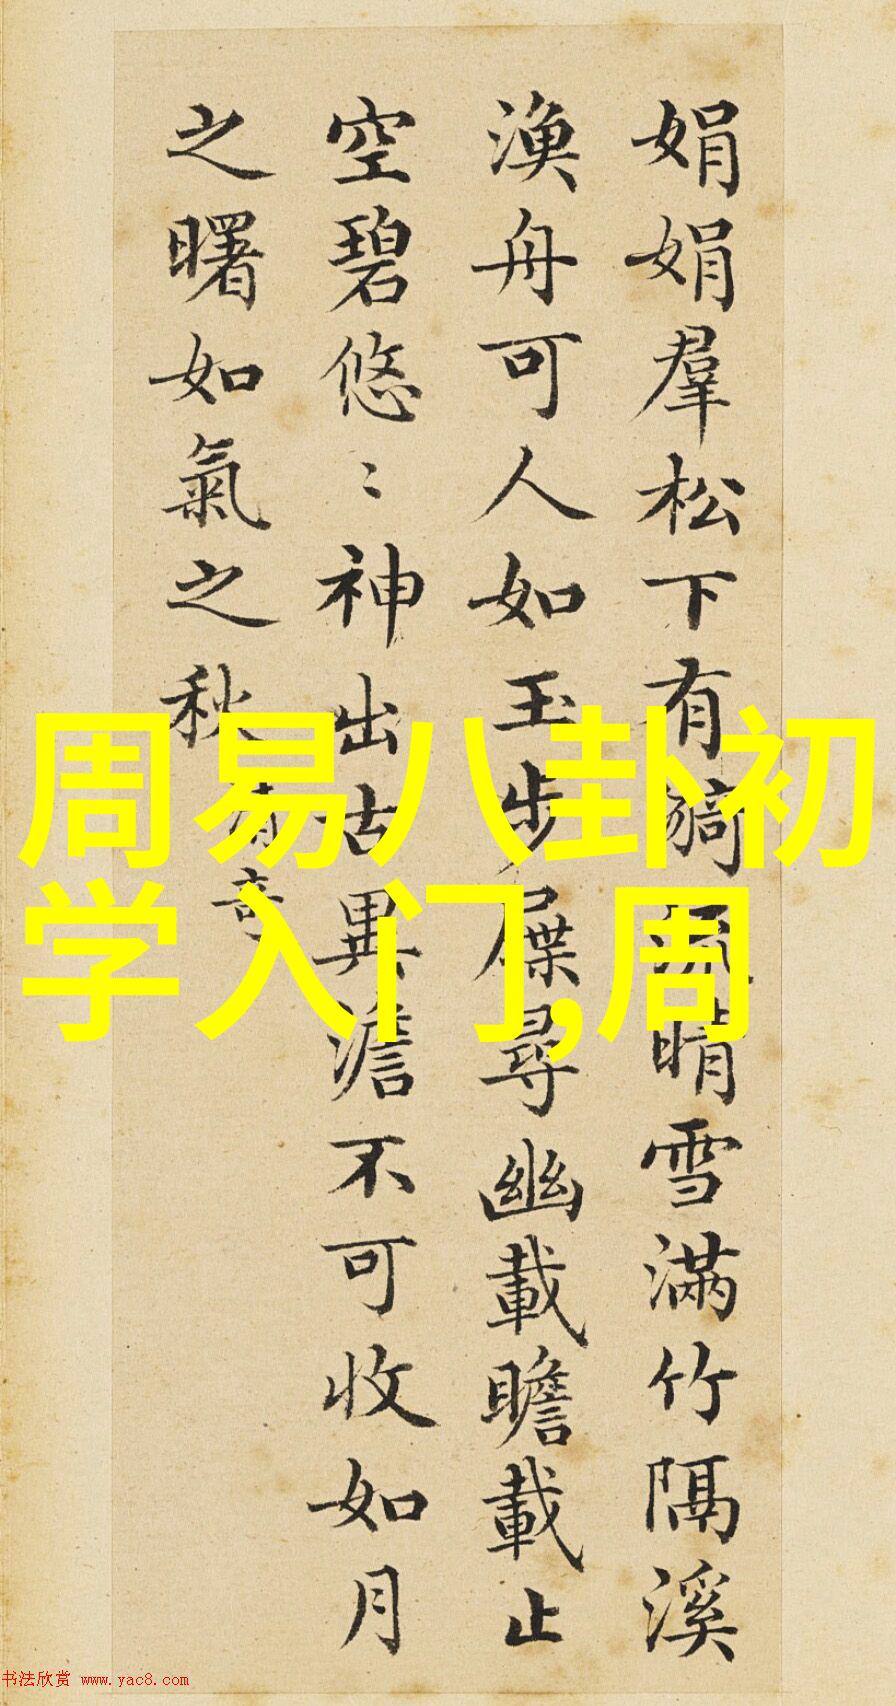 娟娟羣松下有漪流晴雪滿竹隔溪
漁舟可人如玉步屧尋幽載瞻載止
空碧悠〻神出古異澹不可收如月
之曙如氣之秋
清奇
周易八卦初
学入门,周
书法欣赏 www.yac8.com